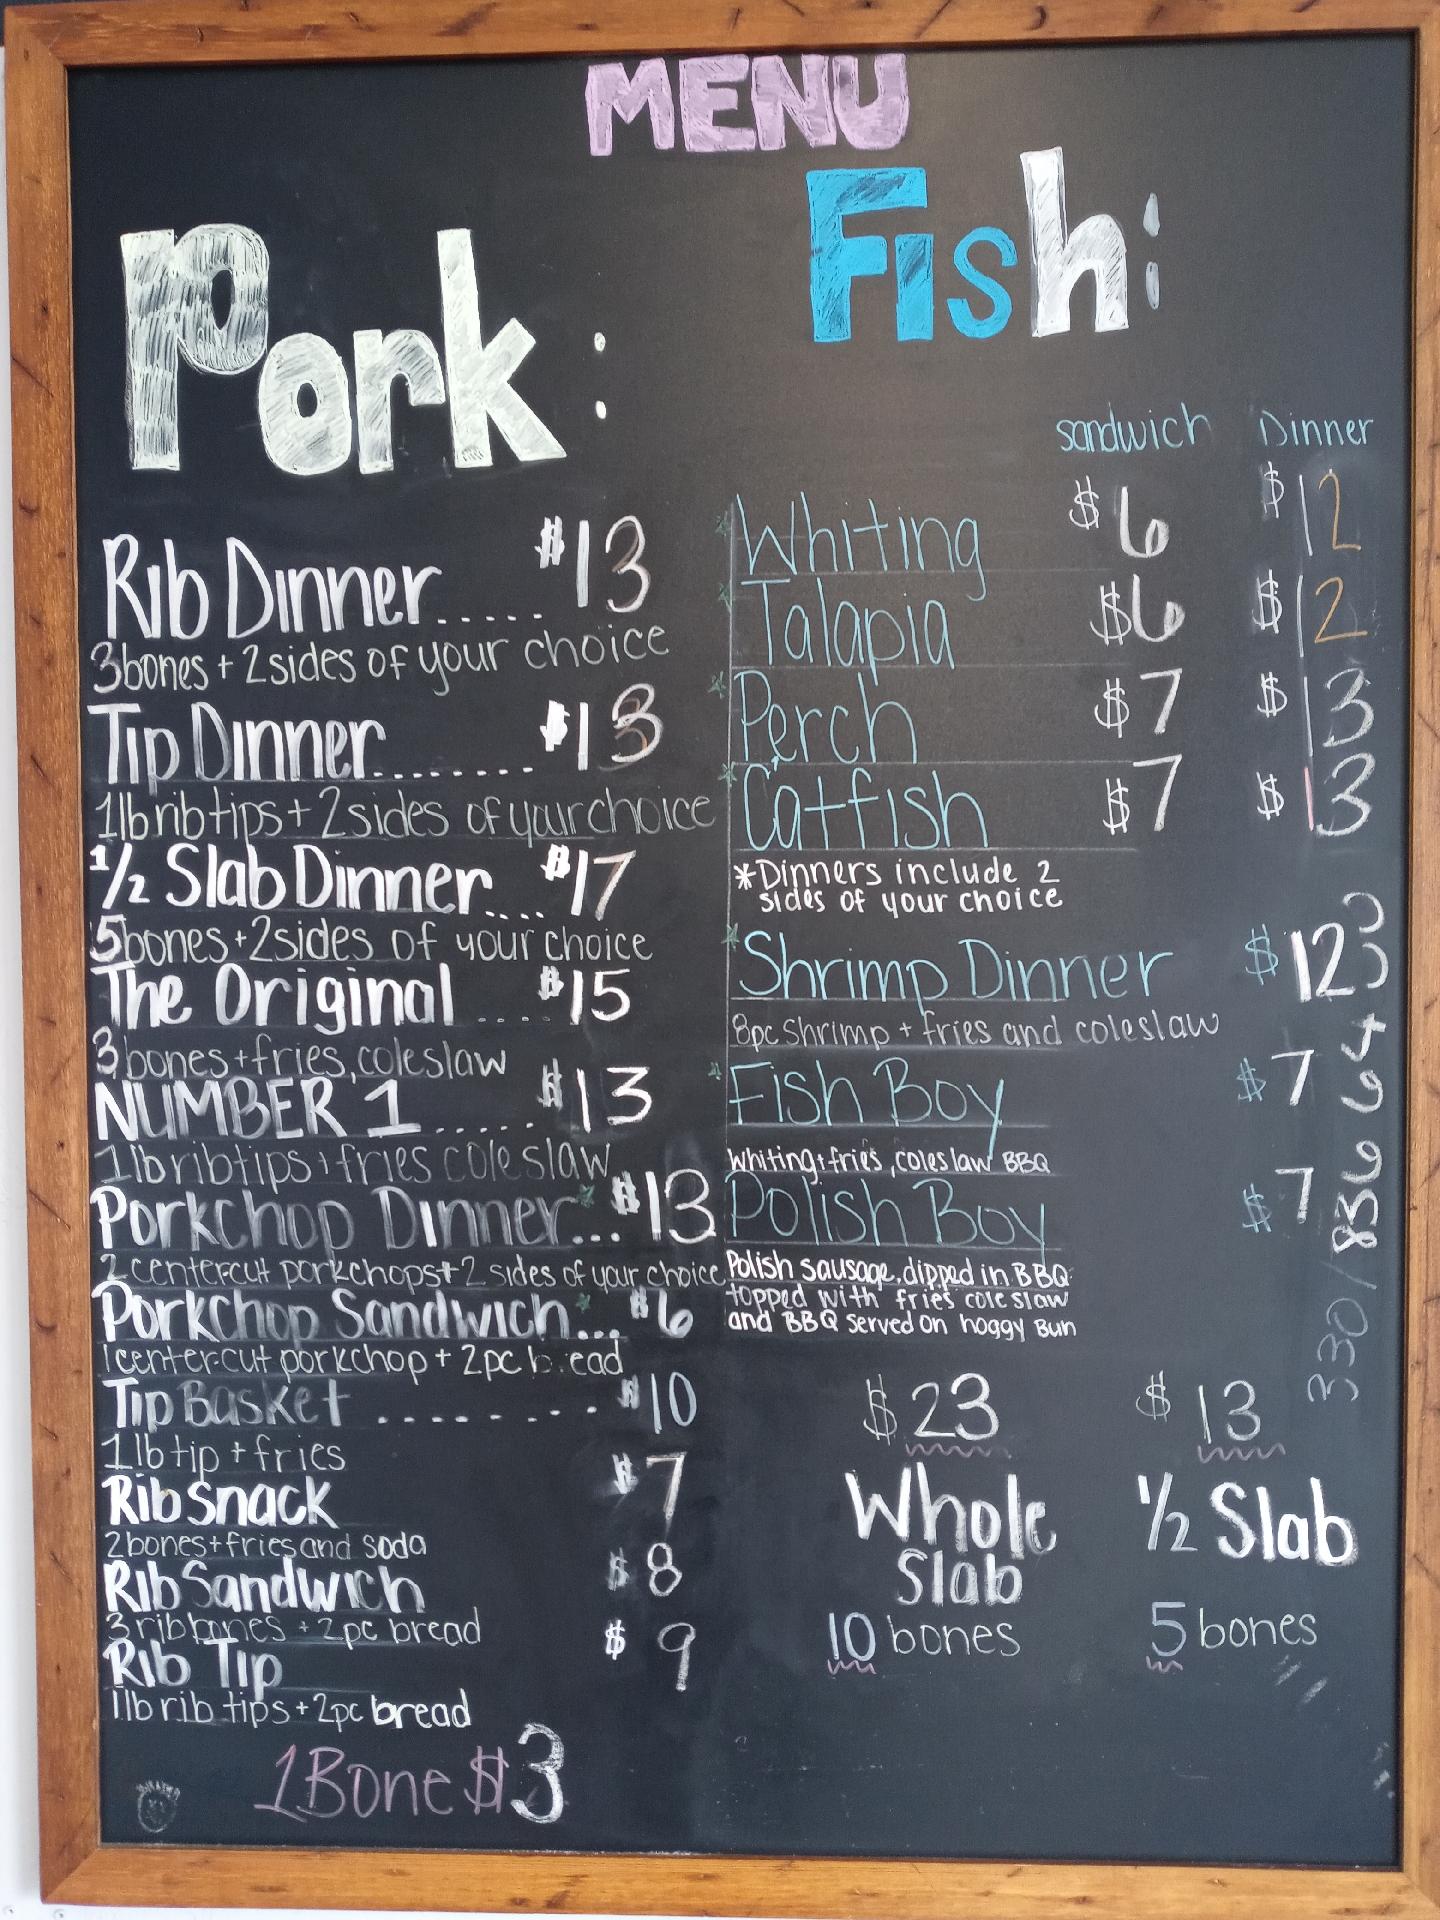 MENU
Pork:
Rib Dinner..... $13
3bones + 2sides of your choice
Tip Dinner........ $13
1lb rib tips + 2sides of your choice
1/2 Slab Dinner.... $17
5bones + 2sides of your choice
The Original .... $15
3 bones + fries, coleslaw
NUMBER 1...... $13
1lb rib tips + fries cole slaw
Porkchop Dinner... $13
2 center-cut porkchops + 2 sides of your choice
Porkchop Sandwich... $6
1 center-cut porkchop + 2pc bread
Tip Basket ......... $10
1lb tip + fries
Rib Snack $7
2bones + fries and soda
Rib Sandwich $8
3 rib bones + 2pc bread
Rib Tip $9
1lb rib tips + 2pc bread
1 Bone $3
Fish:
sandwich Dinner
Whiting $6 $12
Talapia $6 $12
Perch $7 $13
Catfish $7 $13
*Dinners include 2
sides of your choice
Shrimp Dinner $12
8pc shrimp + fries and coleslaw
Fish Boy $7
Whiting + fries, coleslaw BBQ
Polish Boy $7
Polish sausage, dipped in BBQ
topped with fries cole slaw
and BBQ served on hoggy Bun
$23 $13
Whole 1/2 Slab
Slab
10 bones 5 bones
330/836